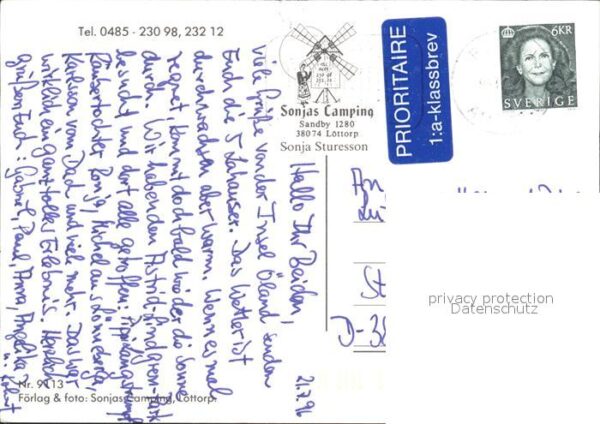 Tel. 0485 - 230 98, 232 12
Sonjas Camping
Sandby 1280
38074 Löttorp
Sonja Sturesson
PRIORITAIRE
1:a-klassbrev
6KR
SVERIGE
21.7.96
Hallo Ihr Beiden,
viele Grüße von der Insel Öland senden
Euch die 5 Lahauser. Das Wetter ist
durchwachsen aber warm. Wenn es mal
regnet kommt doch bald wieder die Sonne
durch. Wir haben den Astrid-Lindgren-Park
besucht und dort alle getroffen: Pippi Langstrumpf
Räubertochter Ronja, Michel aus Lönneberga,
Karlsson vom Dach und viele mehr. Das war
wirklich ein ganz tolles Erlebnis. Herzlich
grüßen Euch: Gabriel, Paul, Anna, Angelika
u.
An
St
D-35
privacy protection
Datenschutz
Nr. 9113
Förlag & foto: Sonjas Camping, Löttorp.